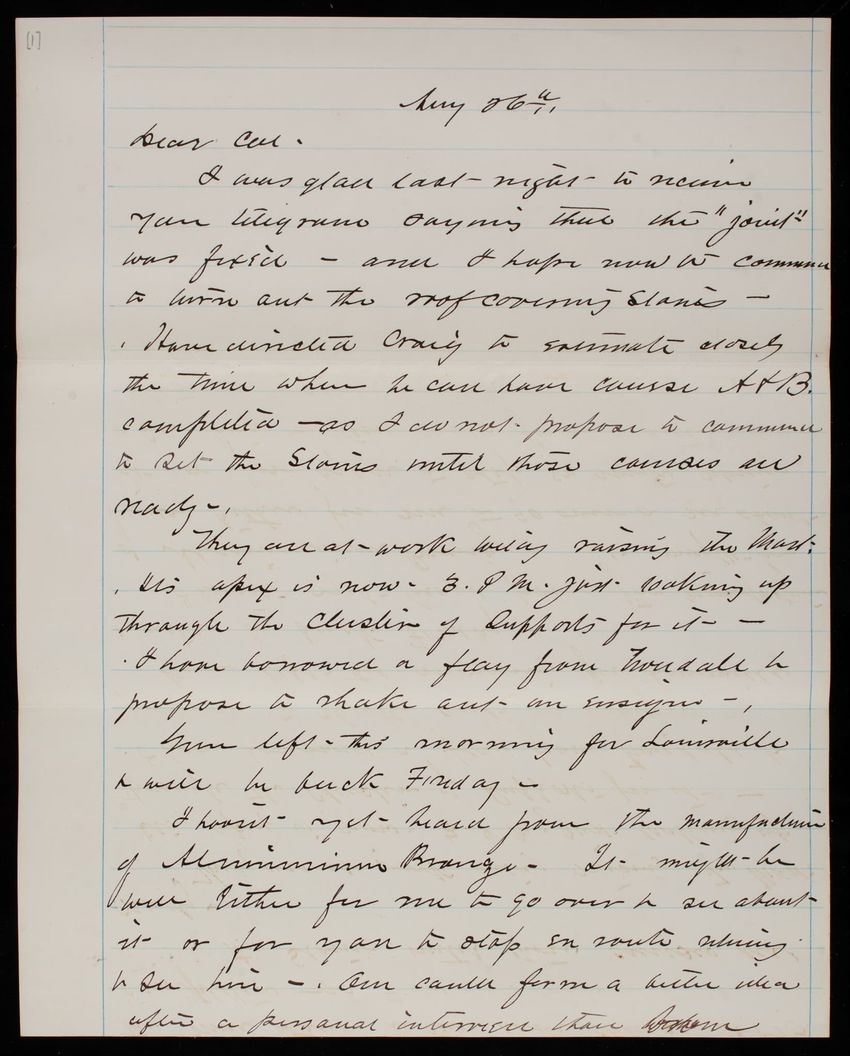 [1]
Aug 26th
Dear Col.
I was glad last night to receive
your telegram saying that the "joint"
was fixed - and I hope now to commence
to turn out the roof covering stones -
Have directed Craig to estimate closely
the time when he can have course A & B.
completed - as I do not propose to commence
to set the stones until those courses are
ready -
They are at work today raising the Mast.
Its apex is now - 3. P M. just looking up
through the cluster of supports for it -
I have borrowed a flag from Truesdale &
propose to shake out an ensign -
Green left this morning for Louisville
& will be back Friday -
I havn't yet heard from the manufacturer
of Aluminium Bronze - It might be
well either for me to go over & see about
it or for you to stop en route
to see him - . One could form a better idea
after a personal interview than